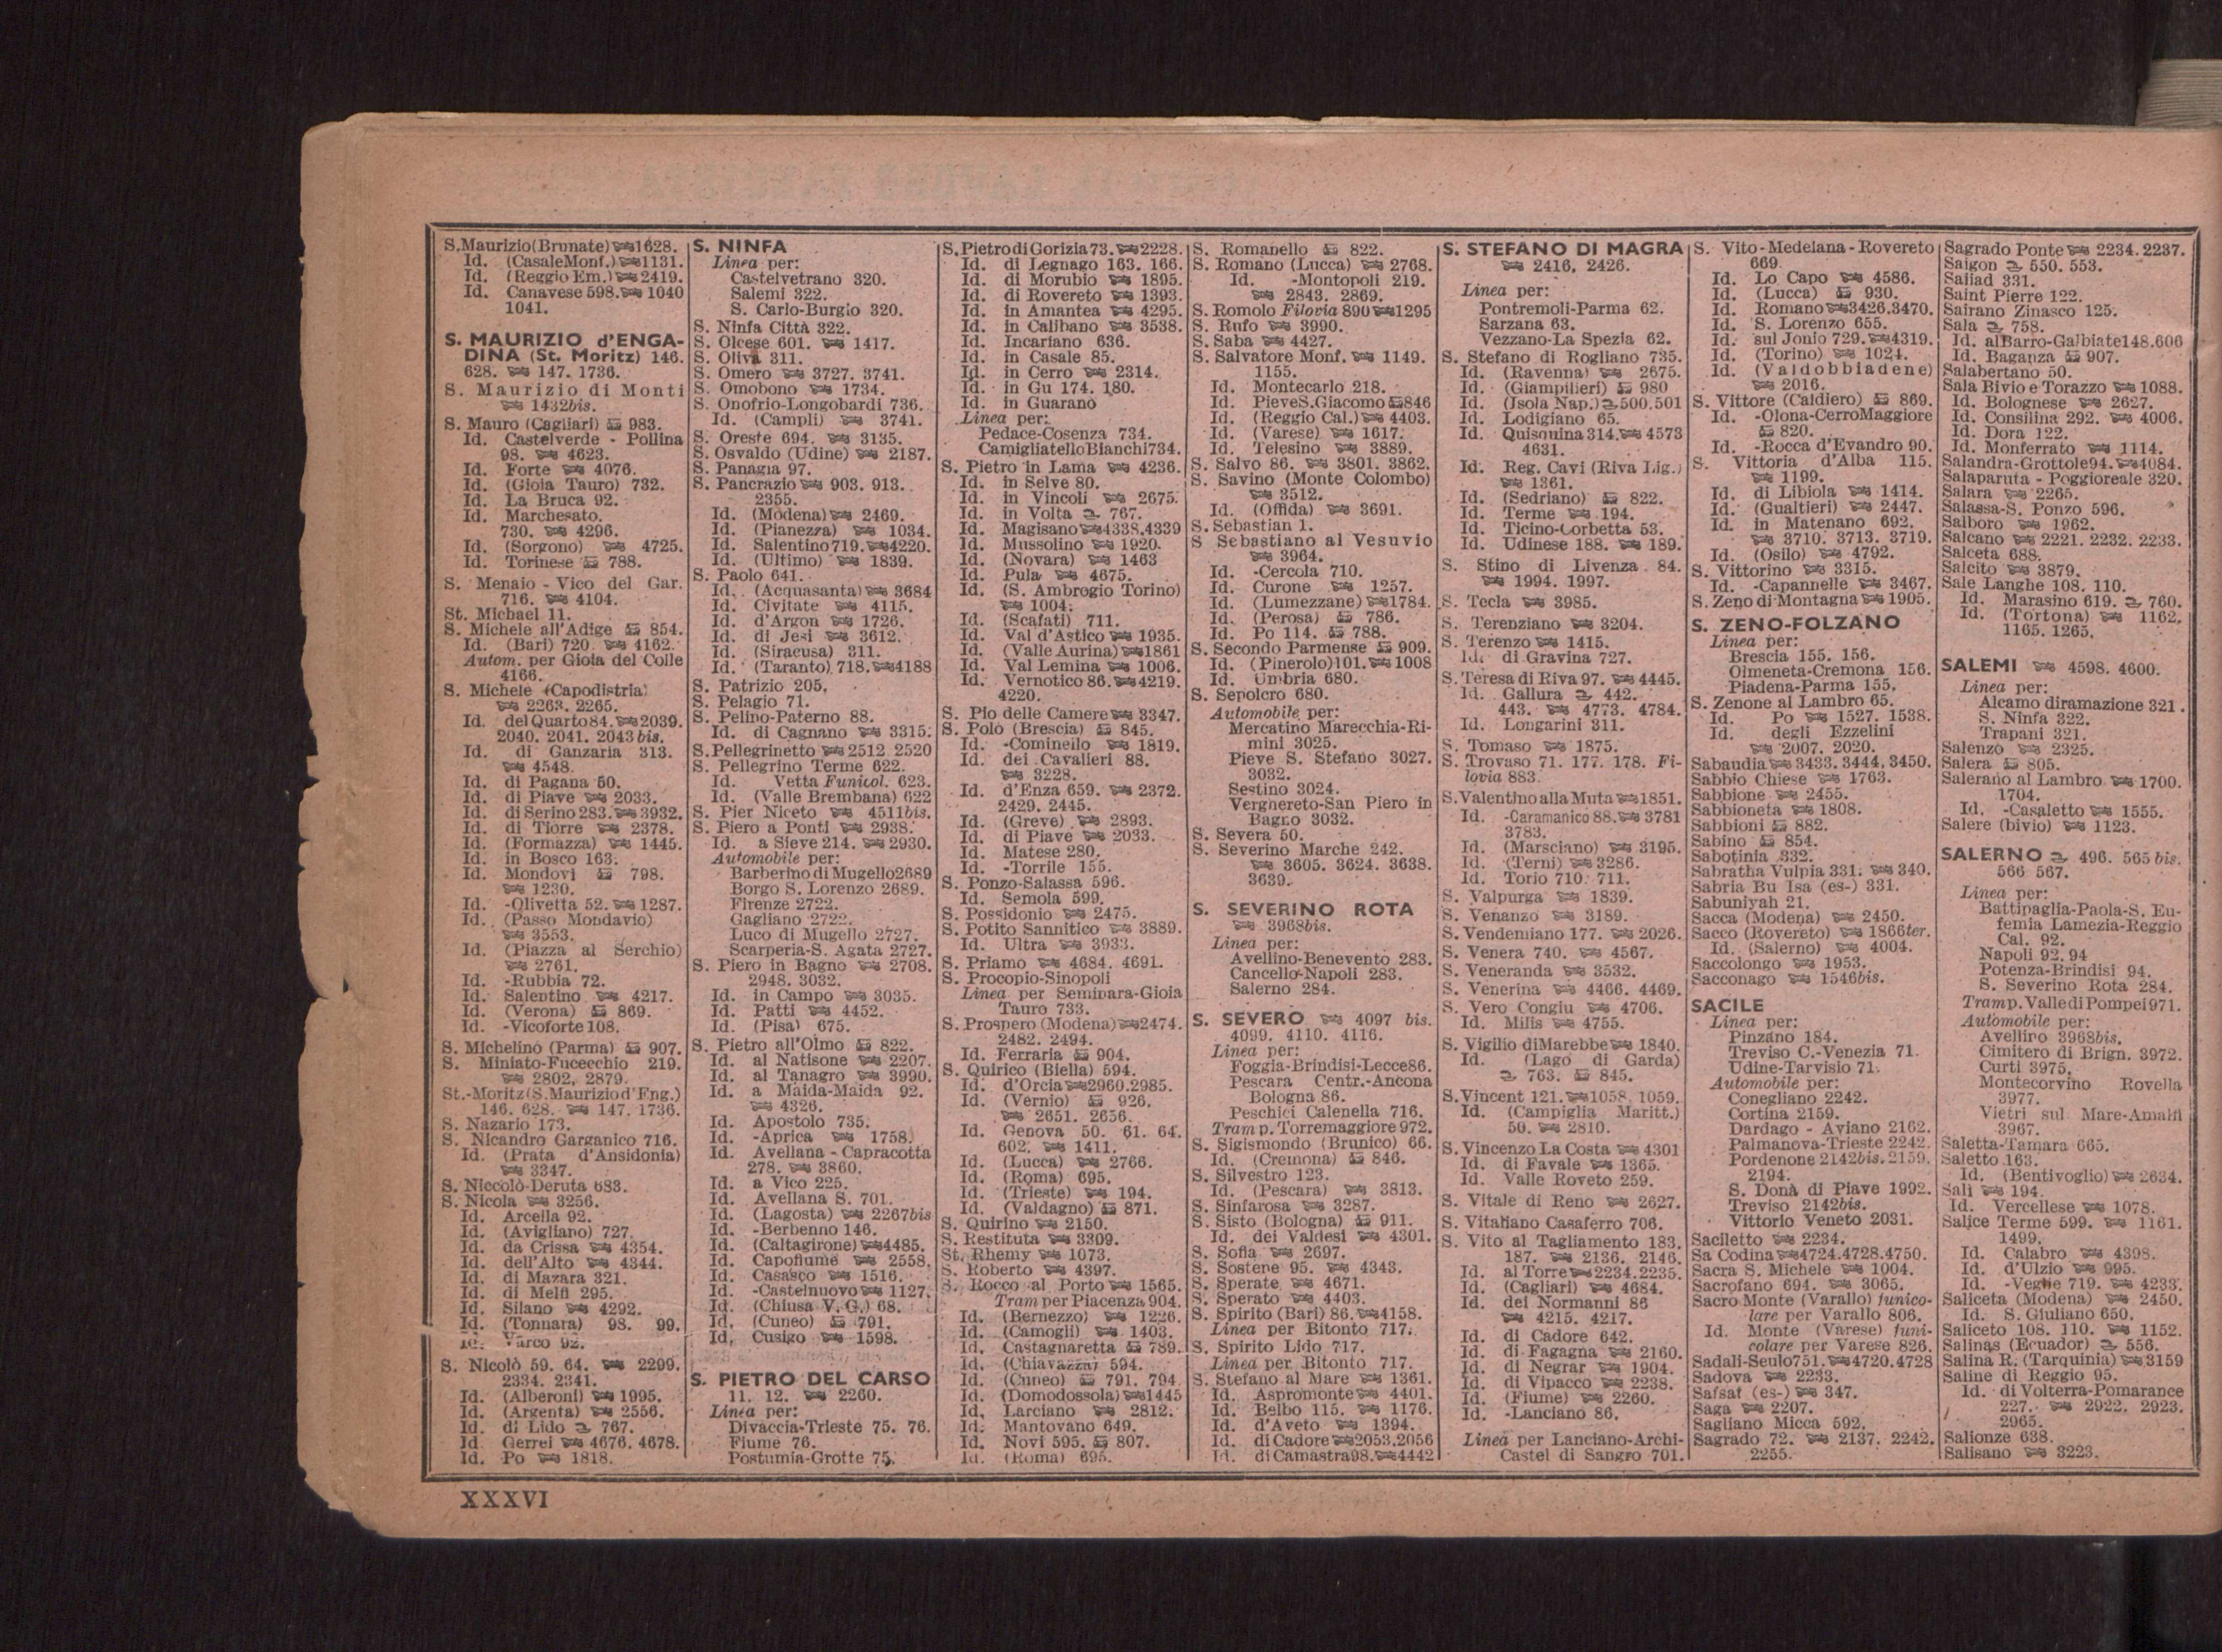 S.Maurizio(Brunate) 1628.
Id. (CasaleMonf.) 1131.
Id. (Reggio Em.) 2419.
Id. Canavese 598. 1040
1041.
S. MAURIZIO d'ENGA-
DINA (St. Moritz) 146.
628. 147. 1736.
S. Maurizio di Monti
1432bis.
S. Mauro (Cagliari) 983.
Id. Castelverde - Pollina
98. 4623.
Id. Forte 4076.
Id. (Gioia Tauro) 732.
Id. La Bruca 92.
Id. Marchesato.
730. 4296.
Id. (Sorgono) 4725.
Id. Torinese 788.
S. Menaio - Vico del Gar.
716. 4104.
St. Michael 11.
S. Michele all'Adige 854.
Id. (Bari) 720. 4162.
Autom. per Gioia del Colle
4166.
S. Michele (Capodistria)
2263. 2265.
Id. del Quarto 84. 2039.
2040. 2041. 2043bis.
Id. di Ganzaria 313.
4548.
Id. di Pagana 50.
Id. di Piave 2033.
Id. di Serino 283. 3932.
Id. di Tiorre 2378.
Id. (Formazza) 1445.
Id. in Bosco 163.
Id. Mondovì 798.
1230.
Id. -Olivetta 52. 1287.
Id. (Passo Mondavio)
3553.
Id. (Piazza al Serchio)
2761.
Id. -Rubbia 72.
Id. Salentino 4217.
Id. (Verona) 869.
Id. -Vicoforte 108.
S. Michelino (Parma) 907.
S. Miniato-Fucecchio 219.
2802. 2879.
St.-Moritz (S.Maurizio d'Eng.)
146. 628. 147. 1736.
S. Nazario 173.
S. Nicandro Garganico 716.
Id. (Prata d'Ansidonia)
3347.
S. Niccolò-Deruta 683.
S. Nicola 3256.
Id. Arcella 92.
Id. (Avigliano) 727.
Id. da Crissa 4354.
Id. dell'Alto 4344.
Id. di Mazara 321.
Id. di Melfi 295.
Id. Silano 4292.
Id. (Tonnara) 98. 99.
Id. Varco 92.
S. Nicolò 59. 64. 2299.
2334. 2341.
Id. (Alberoni) 1995.
Id. (Argenta) 2556.
Id. di Lido 767.
Id. Gerrei 4676. 4678.
Id. Po 1818.
S. NINFA
Linea per:
Castelvetrano 320.
Salemi 322.
S. Carlo-Burgio 320.
S. Ninfa Città 322.
S. Olcese 601. 1417.
S. Oliva 311.
S. Omero 3727. 3741.
S. Omobono 1734.
S. Onofrio-Longobardi 736.
Id. (Campli) 3741.
S. Oreste 694. 3135.
S. Osvaldo (Udine) 2187.
S. Panagia 97.
S. Pancrazio 903. 913.
2355.
Id. (Modena) 2469.
Id. (Pianezza) 1034.
Id. Salentino 719. 4220.
Id. (Ultimo) 1839.
S. Paolo 641.
Id. (Acquasanta) 3684
Id. Civitate 4115.
Id. d'Argon 1726.
Id. di Jesi 3612.
Id. (Siracusa) 311.
Id. (Taranto) 718. 4188
S. Patrizio 205.
S. Pelagio 71.
S. Pelino-Paterno 88.
Id. di Cagnano 3315.
S.Pellegrinetto 2512. 2520
S. Pellegrino Terme 622.
Id. Vetta Funicol. 623.
Id. (Valle Brembana) 622
S. Pier Niceto 4511bis.
S. Piero a Ponti 2938.
Id. a Sieve 214. 2930.
Automobile per:
Barberino di Mugello 2689
Borgo S. Lorenzo 2689.
Firenze 2722.
Gagliano 2722.
Luco di Mugello 2727.
Scarperia-S. Agata 2727.
S. Piero in Bagno 2708.
2948. 3032.
Id. in Campo 3035.
Id. Patti 4452.
Id. (Pisa) 675.
S. Pietro all'Olmo 822.
Id. al Natisone 2207.
Id. al Tanagro 3990.
Id. a Maida-Maida 92.
4326.
Id. Apostolo 735.
Id. -Aprica 1758.
Id. Avellana - Capracotta
278. 3860.
Id. a Vico 225.
Id. Avellana S. 701.
Id. (Lagosta) 2267bis
Id. -Berbenno 146.
Id. (Caltagirone) 4485.
Id. Capofiume 2558.
Id. Casasco 1516.
Id. -Castelnuovo 1127.
Id. (Chiusa V. G.) 68.
Id. (Cuneo) 791.
Id. Cusigo 1598.
S. PIETRO DEL CARSO
11. 12. 2260.
Linea per:
Divaccia-Trieste 75. 76.
Fiume 76.
Postumia-Grotte 75.
S.Pietro di Gorizia 73. 2228.
Id. di Legnago 163. 166.
Id. di Morubio 1895.
Id. di Rovereto 1393.
Id. in Amantea 4295.
Id. in Calibano 3538.
Id. Incariano 636.
Id. in Casale 85.
Id. in Cerro 2314.
Id. in Gu 174. 180.
Id. in Guarano
Linea per:
Pedace-Cosenza 734.
Camigliatello Bianchi 734.
S. Pietro in Lama 4236.
Id. in Selve 80.
Id. in Vincoli 2675.
Id. in Volta 767.
Id. Magisano 4338.4339
Id. Mussolino 1920.
Id. (Novara) 1463
Id. Pula 4675.
Id. (S. Ambrogio Torino)
1004.
Id. (Scafati) 711.
Id. Val d'Astico 1935.
Id. (Valle Aurina) 1861
Id. Val Lemina 1006.
Id. Vernotico 86. 4219.
4220.
S. Pio delle Camere 3347.
S. Polo (Brescia) 845.
Id. -Cominello 1819.
Id. dei Cavalieri 88.
3228.
Id. d'Enza 659. 2372.
2429. 2445.
Id. (Greve) 2893.
Id. di Piave 2033.
Id. Matese 280.
Id. -Torrile 155.
S. Ponzo-Salassa 596.
Id. Semola 599.
S. Possidonio 2475.
S. Potito Sannitico 3889.
Id. Ultra 3933.
S. Priamo 4684. 4691.
S. Procopio-Sinopoli
Linea per Seminara-Gioia
Tauro 733.
S. Prospero (Modena) 2474.
2482. 2494.
Id. Ferraria 904.
S. Quirico (Biella) 594.
Id. d'Orcia 2960.2985.
Id. (Vernio) 926.
2651. 2656.
Id. Genova 50. 61. 64.
602. 1411.
Id. (Lucca) 2766.
Id. (Roma) 695.
Id. (Trieste) 194.
Id. (Valdagno) 871.
S. Quirino 2150.
S. Restituta 3309.
St. Rhemy 1073.
S. Roberto 4397.
S. Rocco al Porto 1565.
Tram per Piacenza 904.
Id. (Bernezzo) 1226.
Id. (Camogli) 1403.
Id. Castagnaretta 789.
Id. (Chiavazza) 594.
Id. (Cuneo) 791. 794.
Id. (Domodossola) 1445
Id. Larciano 2812.
Id. Mantovano 649.
Id. Novi 595. 807.
Id. (Roma) 695.
S. Romanello 822.
S. Romano (Lucca) 2768.
Id. -Montopoli 219.
2843. 2869.
S. Romolo Filovia 890 1295
S. Rufo 3990.
S. Saba 4427.
S. Salvatore Monf. 1149.
1155.
Id. Montecarlo 218.
Id. PieveS.Giacomo 846
Id. (Reggio Cal.) 4403.
Id. (Varese) 1617.
Id. Telesino 3889.
S. Salvo 86. 3801. 3862.
S. Savino (Monte Colombo)
3512.
Id. (Offida) 3691.
S. Sebastian 1.
S Sebastiano al Vesuvio
3964.
Id. -Cercola 710.
Id. Curone 1257.
Id. (Lumezzane) 1784.
Id. (Perosa) 786.
Id. Po 114. 788.
S. Secondo Parmense 909.
Id. (Pinerolo) 101. 1008
Id. Umbria 680.
S. Sepolcro 680.
Automobile per:
Mercatino Marecchia-Ri-
mini 3025.
Pieve S. Stefano 3027.
3032.
Sestino 3024.
Verghereto-San Piero in
Bagno 3032.
S. Severa 50.
S. Severino Marche 242.
3605. 3624. 3638.
3639.
S. SEVERINO ROTA
3968bis.
Linea per:
Avellino-Benevento 283.
Cancello-Napoli 283.
Salerno 284.
S. SEVERO 4097 bis.
4099. 4110. 4116.
Linea per:
Foggia-Brindisi-Lecce86.
Pescara Centr.-Ancona
Bologna 86.
Peschici Calenella 716.
Tramp. Torremaggiore 972.
S. Sigismondo (Brunico) 66.
Id. (Cremona) 846.
S. Silvestro 123.
Id. (Pescara) 3813.
S. Sinfarosa 3287.
S. Sisto (Bologna) 911.
Id. dei Valdesi 4301.
S. Sofia 2697.
S. Sostene 95. 4343.
S. Sperate 4671.
S. Sperato 4403.
S. Spirito (Bari) 86. 4158.
Linea per Bitonto 717.
S. Spirito Lido 717.
Linea per Bitonto 717.
S. Stefano al Mare 1361.
Id. Aspromonte 4401.
Id. Belbo 115. 1176.
Id. d'Aveto 1394.
Id. di Cadore 2053.2056
Id. di Camastra 98. 4442
S. STEFANO DI MAGRA
2416. 2426.
Linea per:
Pontremoli-Parma 62.
Sarzana 63.
Vezzano-La Spezia 62.
S. Stefano di Rogliano 735.
Id. (Ravenna) 2675.
Id. (Giampilieri) 980
Id. (Isola Nap.) 500.501
Id. Lodigiano 65.
Id. Quisquina 314. 4573
4631.
Id. Reg. Cavi (Riva Lig.)
1361.
Id. (Sedriano) 822.
Id. Terme 194.
Id. Ticino-Corbetta 53.
Id. Udinese 188. 189.
S. Stino di Livenza 84.
1994. 1997.
S. Tecla 3985.
S. Terenziano 3204.
S. Terenzo 1415.
Id. di Gravina 727.
S. Teresa di Riva 97. 4445.
Id. Gallura 442.
443. 4773. 4784.
Id. Longarini 311.
S. Tomaso 1875.
S. Trovaso 71. 177. 178. Fi-
lovia 883.
S.Valentino alla Muta 1851.
Id. -Caramanico 88. 3781
3783.
Id. (Marsciano) 3195.
Id. (Terni) 3286.
Id. Torio 710. 711.
S. Valpurga 1839.
S. Venanzo 3189.
S. Vendemiano 177. 2026.
S. Venera 740. 4567.
S. Veneranda 3532.
S. Venerina 4466. 4469.
S. Vero Congiu 4706.
Id. Milis 4755.
S. Vigilio di Marebbe 1840.
Id. (Lago di Garda)
763. 845.
S.Vincent 121. 1058. 1059.
Id. (Campiglia Maritt.)
50. 2810.
S. Vincenzo La Costa 4301
Id. di Favale 1365.
Id. Valle Roveto 259.
S. Vitale di Reno 2627.
S. Vitaliano Casaferro 706.
S. Vito al Tagliamento 183.
187. 2136. 2146.
Id. al Torre 2234.2235.
Id. (Cagliari) 4684.
Id. dei Normanni 86
4215. 4217.
Id. di Cadore 642.
Id. di Fagagna 2160.
Id. di Negrar 1904.
Id. di Vipacco 2238.
Id. (Fiume) 2260.
Id. -Lanciano 86.
Linea per Lanciano-Archi-
Castel di Sangro 701.
S. Vito - Medelana - Rovereto
669.
Id. Lo Capo 4586.
Id. (Lucca) 930.
Id. Romano 3426.3470.
Id. S. Lorenzo 655.
Id. sul Jonio 729. 4319.
Id. (Torino) 1024.
Id. (Valdobbiadene)
2016.
S. Vittore (Caldiero) 869.
Id. -Olona-CerroMaggiore
820.
Id. -Rocca d'Evandro 90.
S. Vittoria d'Alba 115.
1199.
Id. di Libiola 1414.
Id. (Gualtieri) 2447.
Id. in Matenano 692.
3710. 3713. 3719.
Id. (Osilo) 4792.
S. Vittorino 3315.
Id. -Capannelle 3467.
S. Zeno di Montagna 1905.
S. ZENO-FOLZANO
Linea per:
Brescia 155. 156.
Olmeneta-Cremona 156.
Piadena-Parma 155.
S. Zenone al Lambro 65.
Id. Po 1527. 1538.
Id. degli Ezzelini
2007. 2020.
Sabaudia 3433. 3444. 3450.
Sabbio Chiese 1763.
Sabbione 2455.
Sabbioneta 1808.
Sabbioni 882.
Sabino 854.
Sabotinia 332.
Sabratha Vulpia 331. 340.
Sabria Bu Isa (es-) 331.
Sabuniyah 21.
Sacca (Modena) 2450.
Sacco (Rovereto) 1866ter.
Id. (Salerno) 4004.
Saccolongo 1953.
Sacconago 1546bis.
SACILE
Linea per:
Pinzano 184.
Treviso C.-Venezia 71.
Udine-Tarvisio 71.
Automobile per:
Conegliano 2242.
Cortina 2159.
Dardago - Aviano 2162.
Palmanova-Trieste 2242.
Pordenone 2142bis. 2159.
2194.
S. Donà di Piave 1992.
Treviso 2142bis.
Vittorio Veneto 2031.
Saciletto 2234.
Sa Codina 4724.4728.4750.
Sacra S. Michele 1004.
Sacrofano 694. 3065.
Sacro Monte (Varallo) funico-
lare per Varallo 806.
Id. Monte (Varese) funi-
colare per Varese 826.
Sadali-Seulo 751. 4720.4728
Sadova 2233.
Safsaf (es-) 347.
Saga 2207.
Sagliano Micca 592.
Sagrado 72. 2137. 2242.
2255.
Sagrado Ponte 2234. 2237.
Saigon 550. 553.
Saiiad 331.
Saint Pierre 122.
Sairano Zinasco 125.
Sala 758.
Id. alBarro-Galbiate148.606
Id. Baganza 907.
Salabertano 50.
Sala Bivio e Torazzo 1088.
Id. Bolognese 2627.
Id. Consilina 292. 4006.
Id. Dora 122.
Id. Monferrato 1114.
Salandra-Grottole94. 4084.
Salaparuta - Poggioreale 320.
Salara 2265.
Salassa-S. Ponzo 596.
Salboro 1962.
Salcano 2221. 2232. 2233.
Salceta 688.
Salcito 3879.
Sale Langhe 108. 110.
Id. Marasino 619. 760.
Id. (Tortona) 1162.
1165. 1265.
SALEMI 4598. 4600.
Linea per:
Alcamo diramazione 321.
S. Ninfa 322.
Trapani 321.
Salenzo 2325.
Salera 805.
Salerano al Lambro 1700.
1704.
Id. -Casaletto 1555.
Salere (bivio) 1123.
SALERNO 496. 565 bis.
566 567.
Linea per:
Battipaglia-Paola-S. Eu-
femia Lamezia-Reggio
Cal. 92.
Napoli 92. 94
Potenza-Brindisi 94.
S. Severino Rota 284.
Tramp. Valle di Pompei 971.
Automobile per:
Avellino 3968bis.
Cimitero di Brign. 3972.
Curti 3975.
Montecorvino Rovella
3977.
Vietri sul Mare-Amalfi
3967.
Saletta-Tamara 665.
Saletto 163.
Id. (Bentivoglio) 2634.
Sali 194.
Id. Vercellese 1078.
Salice Terme 599. 1161.
1499.
Id. Calabro 4398.
Id. d'Ulzio 995.
Id. -Veglie 719. 4233.
Saliceta (Modena) 2450.
Id. S. Giuliano 650.
Saliceto 108. 110. 1152.
Salinas (Ecuador) 556.
Salina R. (Tarquinia) 3159
Saline di Reggio 95.
Id. di Volterra-Pomarance
227. 2922. 2923.
2965.
Salionze 638.
Salisano 3223.
XXXVI